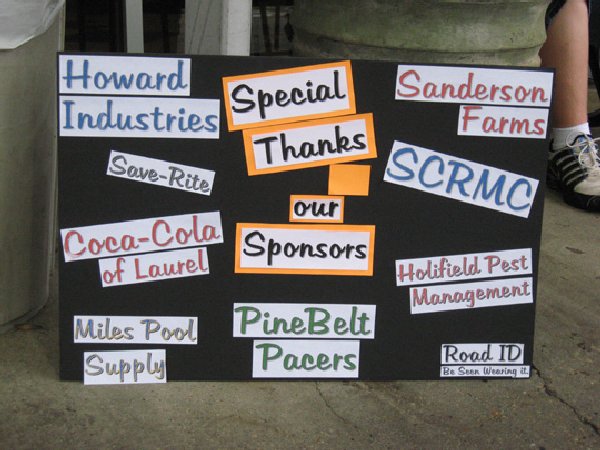 Special
Thanks
our
Sponsors
Howard
Industries
Save-Rite
Coca-Cola
of Laurel
Miles Pool
Supply
PineBelt
Pacers
Sanderson
Farms
SCRMC
Holifield Pest
Management
Road ID
Be Seen Wearing it.